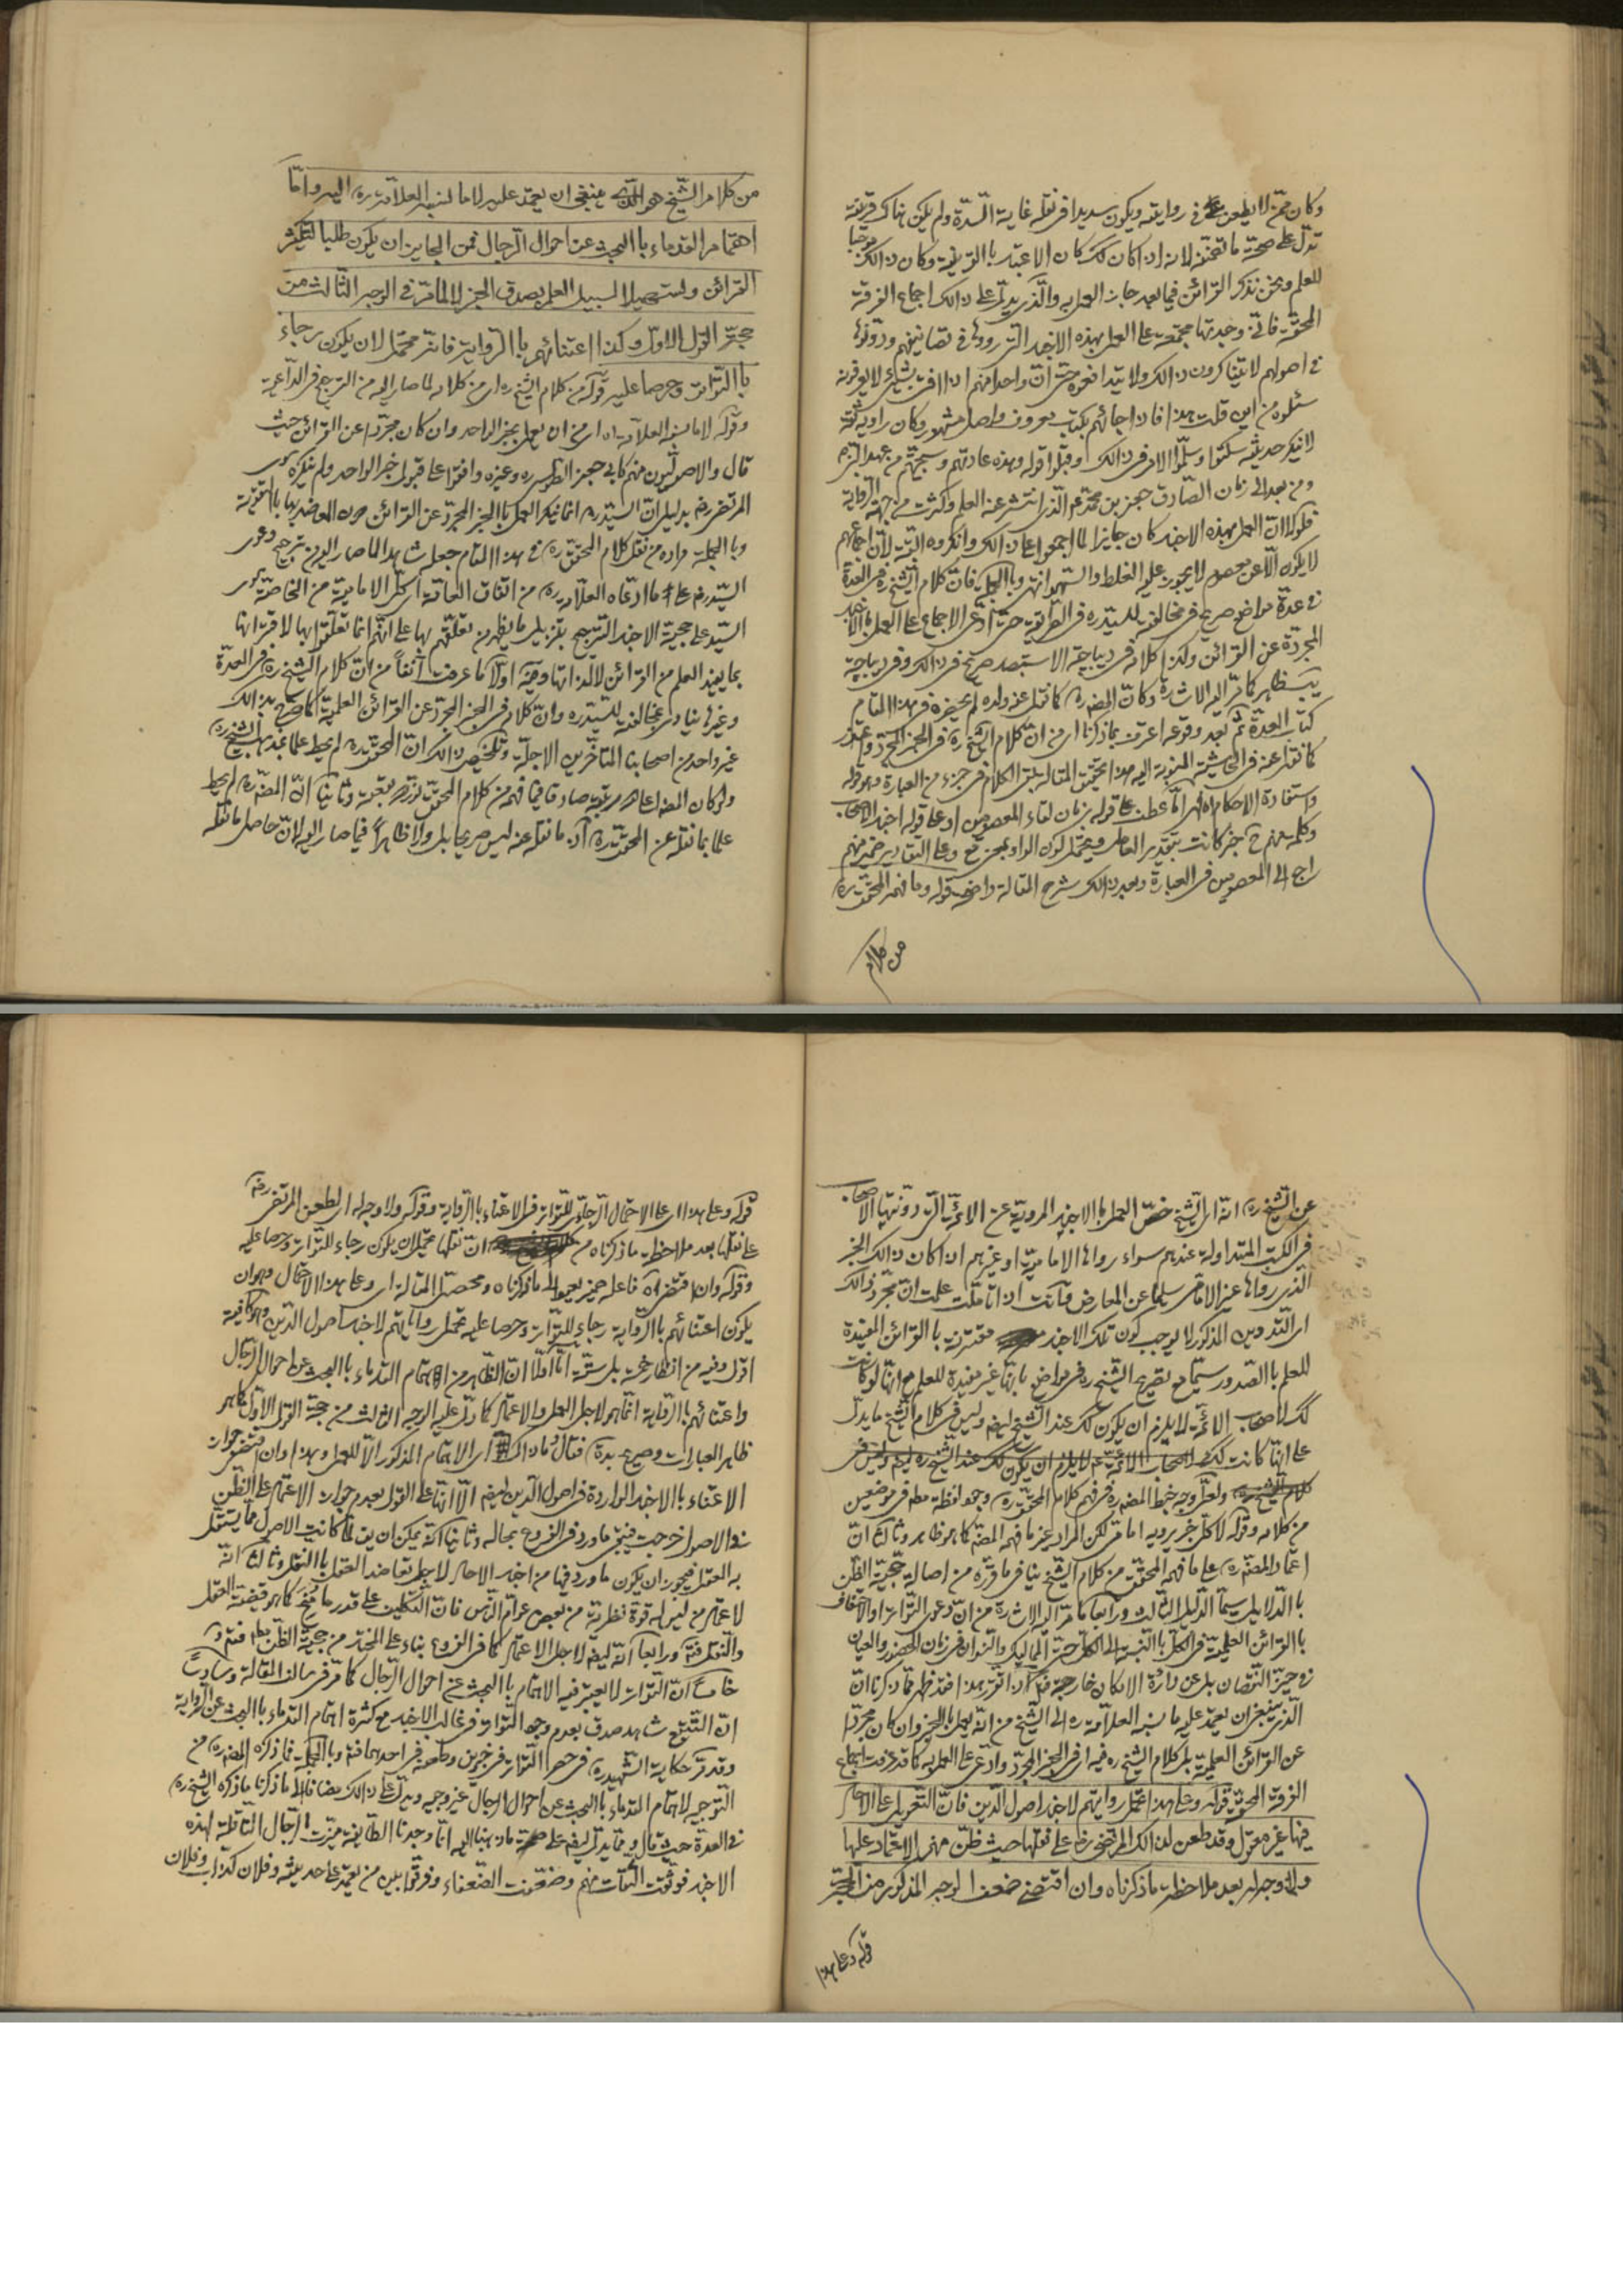 وكان ممّن لا يطعن فى روايته ويكون سديدا فى نقله غاية السّدة ولم يكن هناك قرينة
تدلّ على صحّة ما تضمّنه لانه ان كان كك كان الاعتبار باالقرينة وكان ذالك موجبا
للعلم ونحن نذكر القرائن فيما بعد جاز العمل به والّذى يدلّ على ذالك اجماع الفرقة
المحقّة فانّى وجدتها مجتمعة على العمل بهذه الاخبار التى رووها فى تصانيفهم ودوّنوها
فى اصولهم لا يتناكرون ذالك ولا يتدافعوه حتى انّ واحدا منهم اذا افتى بشىء لا يعرفونه
سئلوه من اين قلت هذا فاذا احالهم بكتاب معروف واصل مشهور وكان راويه ثقة
لا ينكر حديثه سكتوا وسلّموا الامر فى ذالك وقبلوا قوله وهذه عادتهم وسجيّتهم من عهد النبى
ومن بعده الى زمان الصّادق جعفر بن محمّد ع الّذى انتشر عنه العلم وكثرت من جهته الرواية
فلولا انّ العمل بهذه الاخبار كان جايزا لما اجمعوا على ذالك وانكروه البتّة لانّ اجماعهم
لا يكون الّا عن معصوم لا يجوز عليه الغلط والسّهو انتهى وباالجملة فانّ كلام الشيخ ره فى العدّة
فى عدّة مواضع صريح فى مخالفته للسيّد ره فى الطريقة حتى ادّعى الاجماع على العمل باالاخبار
المجرّدة عن القرائن وكذا كلامه فى ديباجة الاستبصار صريح فى ذالك وفى ديباجة
يب ظاهر كما مرّ اليه الاشارة وكانّ المصنف ره كما نقل عنه ولده لم يحضره فى هذا المقام
كتاب العدّة ثم بعد وقوعه اعرف بما ذكرنا اى من انّ كلام الشيخ ره فى الخبر المجرّد واعتذر
كما نقل عنه فى الحاشية المنسوبة اليه هذا تحقيق المقال بقى الكلام فى جزء من العبارة وهو قوله
واستفادة الاحكام اه امّا عطف على قوله زمان لقاء المعصومين او على قوله اخبار الاصحاب
وكلمة منهم ح خبر كانت بتقدير العامل ويحتمل كون الواو بمعنى مع وعلى التقادير ضمير منهم
راجع الى المعصومين فى العبارة وبعد ذالك شرح المقالة واضح قوله وما فهمه المحقّق ره
من كلام
من كلام الشّيخ هو الّذى ينبغى ان يعتمد عليه لا ما نسبه العلّامة ره اليه وامّا
اهتمام القدماء باالبحث عن احوال الرّجال فمن الجايز ان يكون طلبا لتكثير
القرائن وتسهيلا لسبيل العلم بصدق الخبر لا لما مرّ فى الوجه الثّالث من
حجّة القول الاوّل وكذا اعتنائهم باالرّواية فانّه محتمل لان يكون رجاء
باالتّواتر وحرصا عليه قوله من كلام الشيخ ره اى من كلامه لما صار اليه من الترجيح فى الدّاعية
وقوله لا ما نسبه العلّامة اه اى من ان يعمل بخبر الواحد وان كان مجرّدا عن القرائن حيث
قال والاصوليّون منهم كابى جعفر الطوسى ره وغيره وافقوا على قبول خبر الواحد ولم ينكره سوى
المرتضى رض بدليل انّ السيّد ره انما ينكر العمل باالخبر المجرّد عن القرائن دون المعاضد بها باالقرينة
وباالجملة مراده من نقل كلام المحقّق ره فى هذا المقام جعله شاهدا لما صار اليه من ترجيح دعوى
السيّد رض على ما ادّعاه العلّامة ره من اتفاق العامّة اى كلّ الامامية من الخاصّة سوى
السيّد على حجيّة الاخبار الترجيح بتنزيل ما يظهر من تعلّقهم بها على انّهم انّما تعلّقوا بها لاقترانها
بما يفيد العلم من القرائن لا لذاتها وفيه اوّلا ما عرفت آنفاً من انّ كلام الشيخ ره فى العدّة
وغيرها ينادى بمخالفته للسيّد ره وانّ كلامه فى الخبر المجرّد عن القرائن العلمية كما صرّح بذالك
غير واحد من اصحابنا المتاخّرين الاجلّة وتلخيص ذالك انّ المحقّق ره لم يحط علما بمذهب الشيخ ره
علما بما نقله عن المحقّق ره اذ ما نقله عنه ليس صريحا بل ولا ظاهراً فيما صار اليه لانّ حاصل ما نقله
عن الشّيخ ره انّه اى الشّيخ خصّ العمل باالاخبار المرويّة عن الائمّة التى دوّنتها الاصحاب
فى الكتب المتداولة عندهم سواء رواها الامامية او غيرهم اذا كان ذالك الخبر
الّذى رواها غير الامامى سليما عن المعارض وانت اذا تامّلت علمت انّ مجرّد ذالك
اى التدوين المذكور لا يوجب كون تلك الاخبار مقترنة باالقرائن المفيدة
للعلم باالصّدور سيّما مع تصريح الشّيخ ره فى مواضع بانّها غير مفيدة للعلم مع انّها لو كانت
كك لاصحاب الائمّة لا يلزم ان يكون كك عند الشّيخ ايضا وليس فى كلام الشّيخ ما يدلّ
على انّها كانت كك
ولعلّ وجه خبط المصنف ره فى فهم كلام المحقّق ره وجود لفظة فى موضعين
من كلامه وقوله لا كلّ خبر يرويه امامى لكن المراد غير ما فهمه المصنف كما هو ظاهر وثالثا انّ
اعتماد المصنف ره على ما فهمه المحقّق من كلام الشّيخ ينافى ما قرّره من اصالة حجيّة الظّن
باالدّلايل سيّما الدّليل الثّالث ورابعا ما مرّ اليه الاشارة من انّ دعوى التّواتر او الاحتفاف
باالقرائن العلميّة فى الكلّ باالنّسبة الى الكلّ حتى المماليك والنسوان فى زمان الحضور والغياب
فى حيّز النّقصان بل عن دائرة الامكان خارجة اذا تقرّر هذا فقد ظهر ممّا ذكرنا انّ
الّذى ينبغى ان يعتمد عليه ما نسبه العلّامة ره الى الشّيخ من انّه يعمل باالخبر وان كان مجرّدا
عن القرائن العلميّة بل كلام الشّيخ ره فيه اى فى الخبر المجرّد وادّعى على العمل به كما قد عرفت اجماع
الفرقة المحقّة قوله وعلى هذا تحمل روايتهم لاخبار اصول الدّين فانّ التّعويل على الآحاد
فيها غير معقول وقد طعن لذالك المرتضى رض على نقلها حيث ظنّ منهم الاعتماد عليها
ولا وجه له بعد ملاحظة ما ذكرناه وان اقتضى ضعف الوجه المذكور من الحجّة
قوله وعلى هذا
قوله وعلى هذا اى على الاحتمال الرّجائى للتّواتر فى الاعتناء باالرّواية وقوله ولا وجه له اى لطعن المرتضى رض
على نقلها بعد ملاحظة ما ذكرناه من انّ نقلها محتمل لان يكون رجاء للتّواتر وحرصا عليه
وقوله وان اقتضى اه فاعله ضمير يعود الى ما ذكرناه ومحصّل المقالة اى وعلى هذا الاحتمال وهو ان
يكون اعتنائهم باالرّواية رجاء للتّواتر وحرصا عليه تحمل رواياتهم لاخبار اصول الدّين
اقول وفيه من انظار خمسة بل ستّة امّا اوّلا انّ الظّاهر من اهتمام القدماء باالبحث عن احوال الرّجال
واعتنائهم باالرّواية انّما هو لاجل العمل والاعتماد كما دلّ عليه الوجه الثالث من حجّة القول الاوّل كما هو
ظاهر العبارات وصريح عدّة فقال وما ذاك اى الاهتمام المذكور الّا للعمل وهذا وان اقتضى جواز
الاعتناء باالاخبار الواردة فى اصول الدّين ايضا الّا انّ بناء على القول بعدم جواز الاعتماد على الظّن
فى الاصول خرجت فيبقى ما ورد فى الفروع بحاله وثانيا انّه يمكن ان يقال لمّا كانت الاصول ممّا يستقلّ
به العقل فيجوز ان يكون ما ورد فيها من اخبار الآحاد لاجل تعاضد العقل باالنقل وثالثا انّه
لاعتماد من ليس له قوّة نظريّة من بعض عوامّ النّاس فانّ التكليف على قدر ما منح كما هو قضيّة العقل
والنّقل فتدبّر ورابعا انّه ايضا لاجل الاعتماد كما فى الفروع بناء على المختار من حجيّة الظنّ مطلقا فتدبّر
خامساً انّ التّواتر لا يعتبر فيه الاهتمام باالبحث عن احوال الرّجال كما مرّ فى سالف المقالة وسادساً
انّ التّتبّع شاهد صدق بعدم وجود التّواتر فى غالب الاخبار مع كثرة اهتمام القدماء باالبحث عن الرّواية
وقد مرّ حكاية الشّهيد ره فى حصر التّواتر فى خبرين وطعنه فى احدهما فتدبر وباالجملة فما ذكره المصنف ره من
التّوجيه لاهتمام القدماء باالبحث عن احوال الرّجال غير وجيه ويدلّ على ذالك مضافا الى ما ذكرنا ما ذكره الشيخ ره
فى العدّة حيث قال وممّا يدلّ ايضا على صحّة ما ذهبنا اليه انّا وجدنا الطّايفة ميّزت الرّجال النّاقلة لهذه
الاخبار فوثّقت الثّقات منهم وضعّفت الضّعفاء وفرّقوا بين من يعتمد على حديثه وفلان كذّاب وفلان